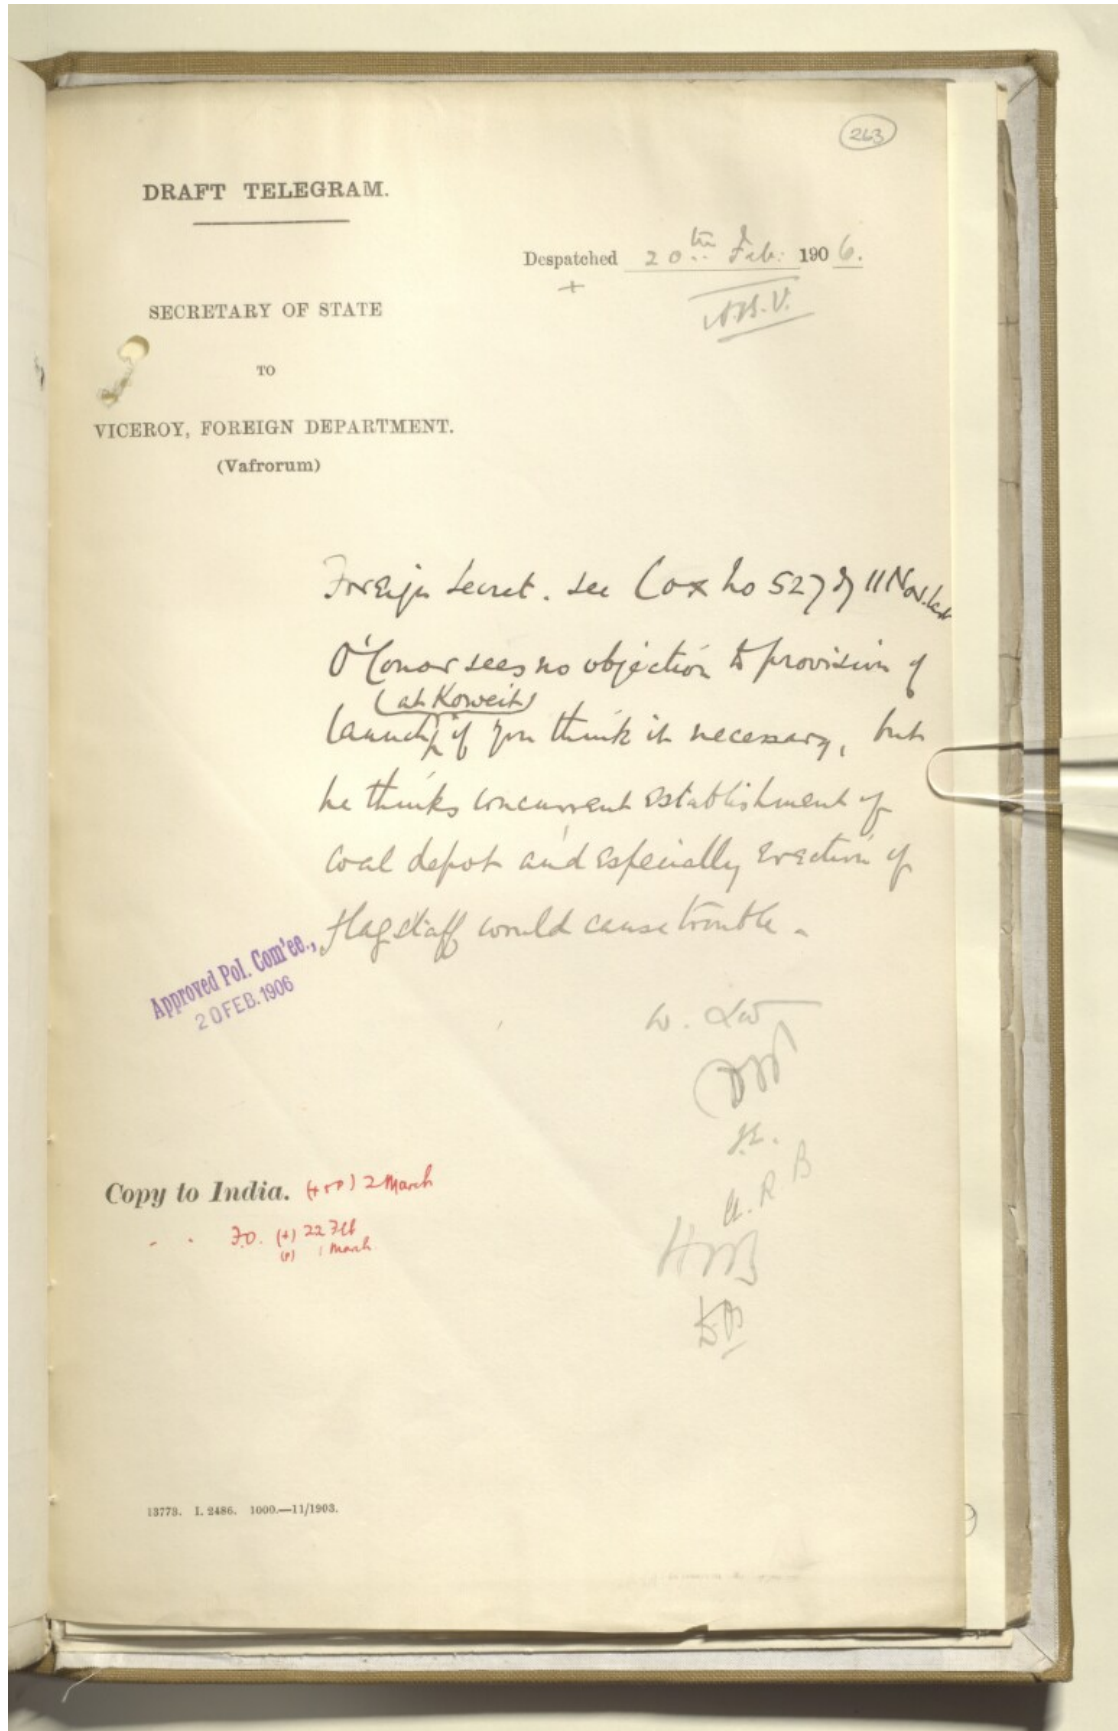 263
DRAFT TELEGRAM.
Despatched 20th Feb: 1906.
+
SECRETARY OF STATE
TO
VICEROY, FOREIGN DEPARTMENT.
(Vafrorum)
Foreign Secret. See Cox No 527 of 11 Nov. last
O'Conor sees no objection to provision of
(at Koweit)
launch, if you think it necessary, but
he thinks concurrent establishment of
coal depot and especially erection of
flagstaff would cause trouble.
Approved Pol. Com'ee.,
20 FEB. 1906
W. LW
H.
A.R.B
HMB
Copy to India. (+ & P) 2 March
" " F.O. (+) 22 Feb
(P) 1 March
13773. I. 2486. 1000.—11/1903.